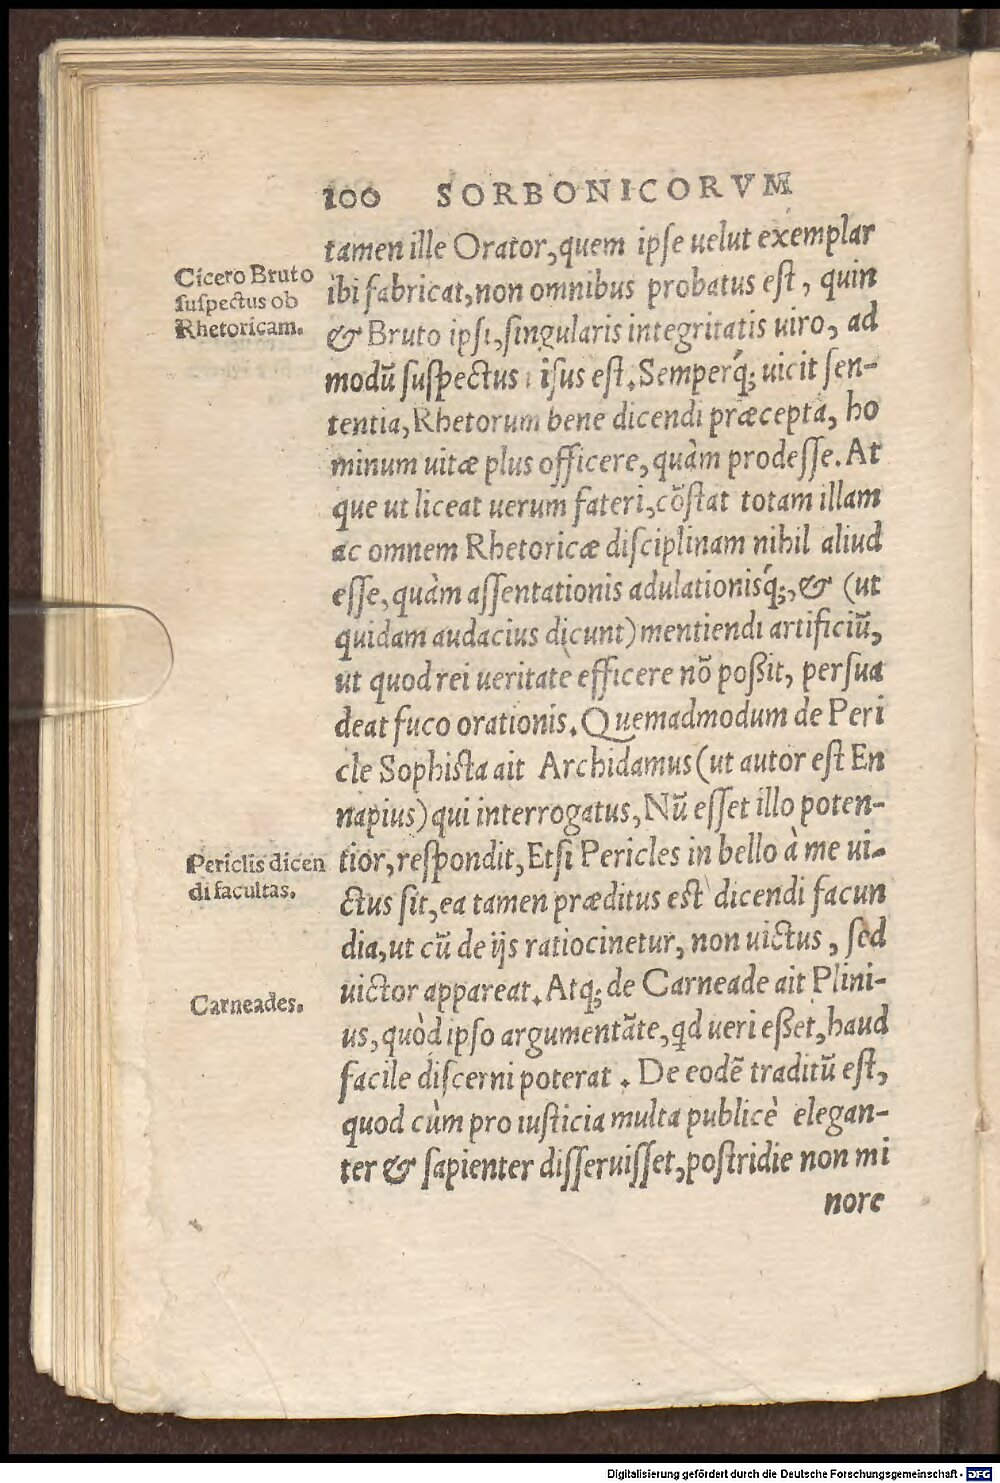 100 SORBONICORVM
tamen ille Orator, quem ipse uelut exemplar
Cicero Bruto
suspectus ob
Rhetoricam.
ibi fabricat, non omnibus probatus est, quin
& Bruto ipsi, singularis integritatis uiro, ad
modū suspectus isus est. Semperq́; uicit sen-
tentia, Rhetorum bene dicendi præcepta, ho
minum uitæ plus officere, quàm prodesse. At
que ut liceat uerum fateri, cōstat totam illam
ac omnem Rhetoricæ disciplinam nihil aliud
esse, quàm assentationis adulationisq́;, & (ut
quidam audacius dicunt) mentiendi artificiū,
ut quod rei ueritate efficere nō poßit, persua
deat fuco orationis. Quemadmodum de Peri
cle Sophista ait Archidamus (ut autor est En
napius) qui interrogatus, Nū esset illo poten-
Periclis dicen
di facultas.
tior, respondit, Etsi Pericles in bello à me ui-
ctus sit, ea tamen præditus est dicendi facun
dia, ut cū de ijs ratiocinetur, non uictus, sed
uictor appareat. Atq; de Carneade ait Plini-
Carneades.
us, quòd ipso argumentāte, qd ueri eßet, haud
facile discerni poterat. De eodē traditū est,
quod cùm pro iusticia multa publicè elegan-
ter & sapienter disseruisset, postridie non mi
nore
Digitalisierung gefördert durch die Deutsche Forschungsgemeinschaft - DFG